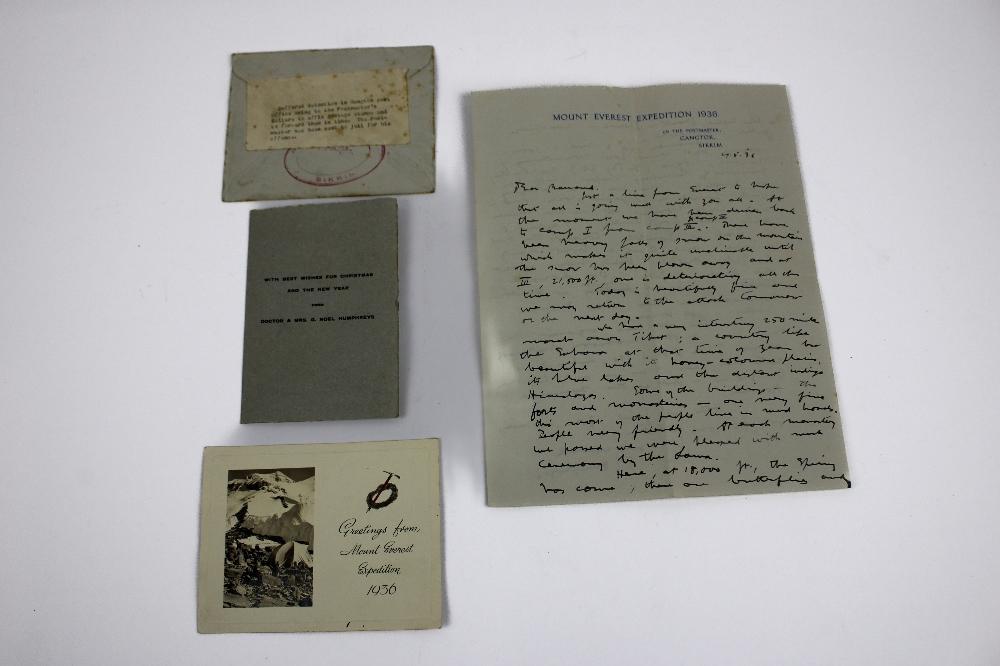 Suffered detention in Gangtok post
office owing to the Postmaster's
failure to affix postage stamps and
to forward them in time. The Post-
master has been sent to jail for his
offence.
SIKKIM
WITH BEST WISHES FOR CHRISTMAS
AND THE NEW YEAR
FROM
DOCTOR & MRS. G. NOEL HUMPHREYS
Greetings from
Mount Everest
Expedition
1936
MOUNT EVEREST EXPEDITION 1936
C/O THE POSTMASTER,
GANGTOK,
SIKKIM
Dear
Just a line from Everest to hope
that all is going well with you all. At
the moment we have been driven back
to Camp I from Camp III. There have
been heavy falls of snow on the mountain
which makes it quite unclimbable until
the snow has been blown away and at
III, 21,500 ft, one is deteriorating all the
time. Today is beautifully fine and
we may return to the attack tomorrow
or the next day.
We had a very interesting 250 mile
march across Tibet; a country like
the Sahara at that time of year but
beautiful with its honey-coloured plains,
its blue lakes and the distant indigo
Himalayas. Some of the buildings - the
forts and monasteries - are very fine
tho' most of the people live in mud hovels.
People very friendly. At each monastery
we passed we were blessed with much
ceremony by the Lama.
Here, at 18,000 ft, the Spring
has come, there are butterflies and